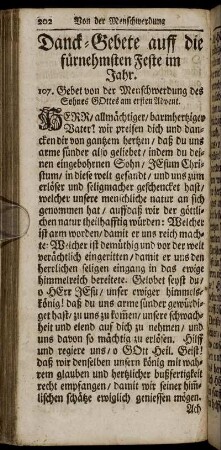 202 Von der Menschwerdung
Danck-Gebete auff die
fürnehmsten Feste im
Jahr.
107. Gebet von der Menschwerdung des
Sohnes GOttes am ersten Advent.
HERR/ allmächtiger/ barmhertziger
Vater? wir preisen dich und dan-
cken dir von gantzem hertzen/ daß du uns
arme sünder also geliebet/ indem du dei-
nen eingebohrnen Sohn/ JEsum Chri-
stum/ in diese welt gesandt/ und uns zum
erlöser und seligmacher geschencket hast/
welcher unsere menschliche natur an sich
genommen hat/ auffdaß wir der göttli-
chen natur theilhafftig würden: Welcher
ist arm worden/ damit er uns reich mach-
te: Welcher ist demüthig und vor der welt
verächtlich eingeritten/ damit er uns den
herrlichen seligen eingang in das ewige
himmelreich bereitete. Gelobet seyst du/
o HErr JEsu/ unser ewiger himmels-
könig! daß du uns arme sünder gewür-
diget hast/ zu uns zu kommen/ unsere schwach-
heit und elend auf dich zu nehmen/ und
uns davon so mächtig zu erlösen. Hilff
und regiere uns/ o GOtt Heil. Geist!
daß wir denselben unsern könig mit wah-
rem glauben und hertzlicher bußfertigkeit
recht empfangen/ damit wir seiner him̃-
lischen schätze ewiglich geniessen mögen.
Ach